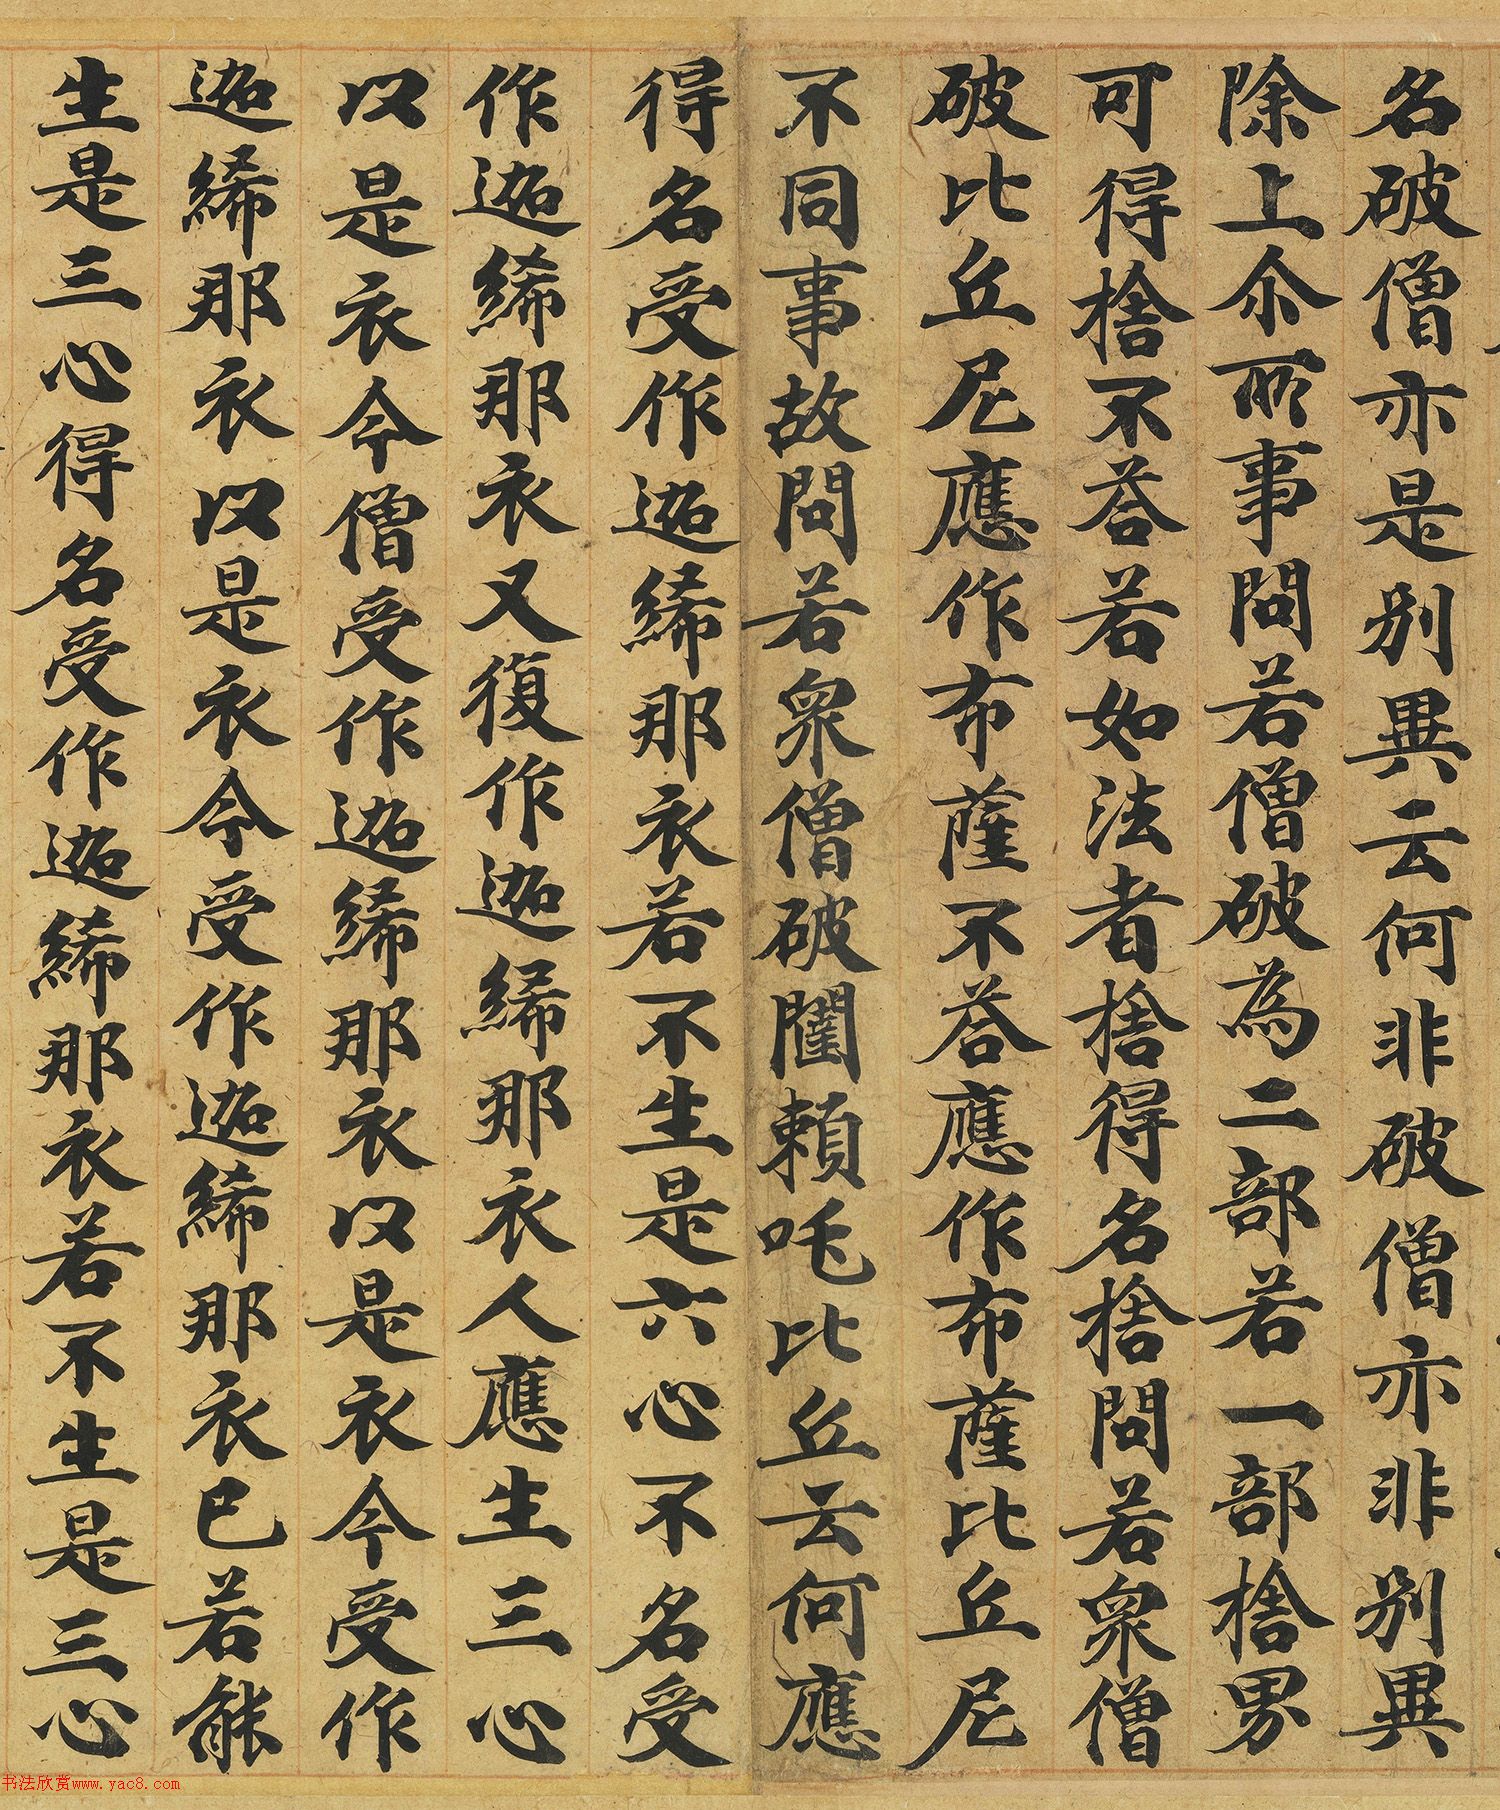 名破僧亦是別異云何非破僧亦非別異
除上尒所事問若僧破為二部若一部捨男
可得捨不荅若如法者捨得名捨問若眾僧
破比丘尼應作布薩不荅應作布薩比丘尼
不同事故問若眾僧破闡賴吒比丘云何應
得名受作迦絺那衣若不生是六心不名受
作迦絺那衣又復作迦絺那衣人應生三心
以是衣今僧受作迦絺那衣以是衣今受作
迦絺那衣以是衣今受作迦絺那衣已若能
生是三心得名受作迦絺那衣若不生是三心
书法欣赏www.yac8.com